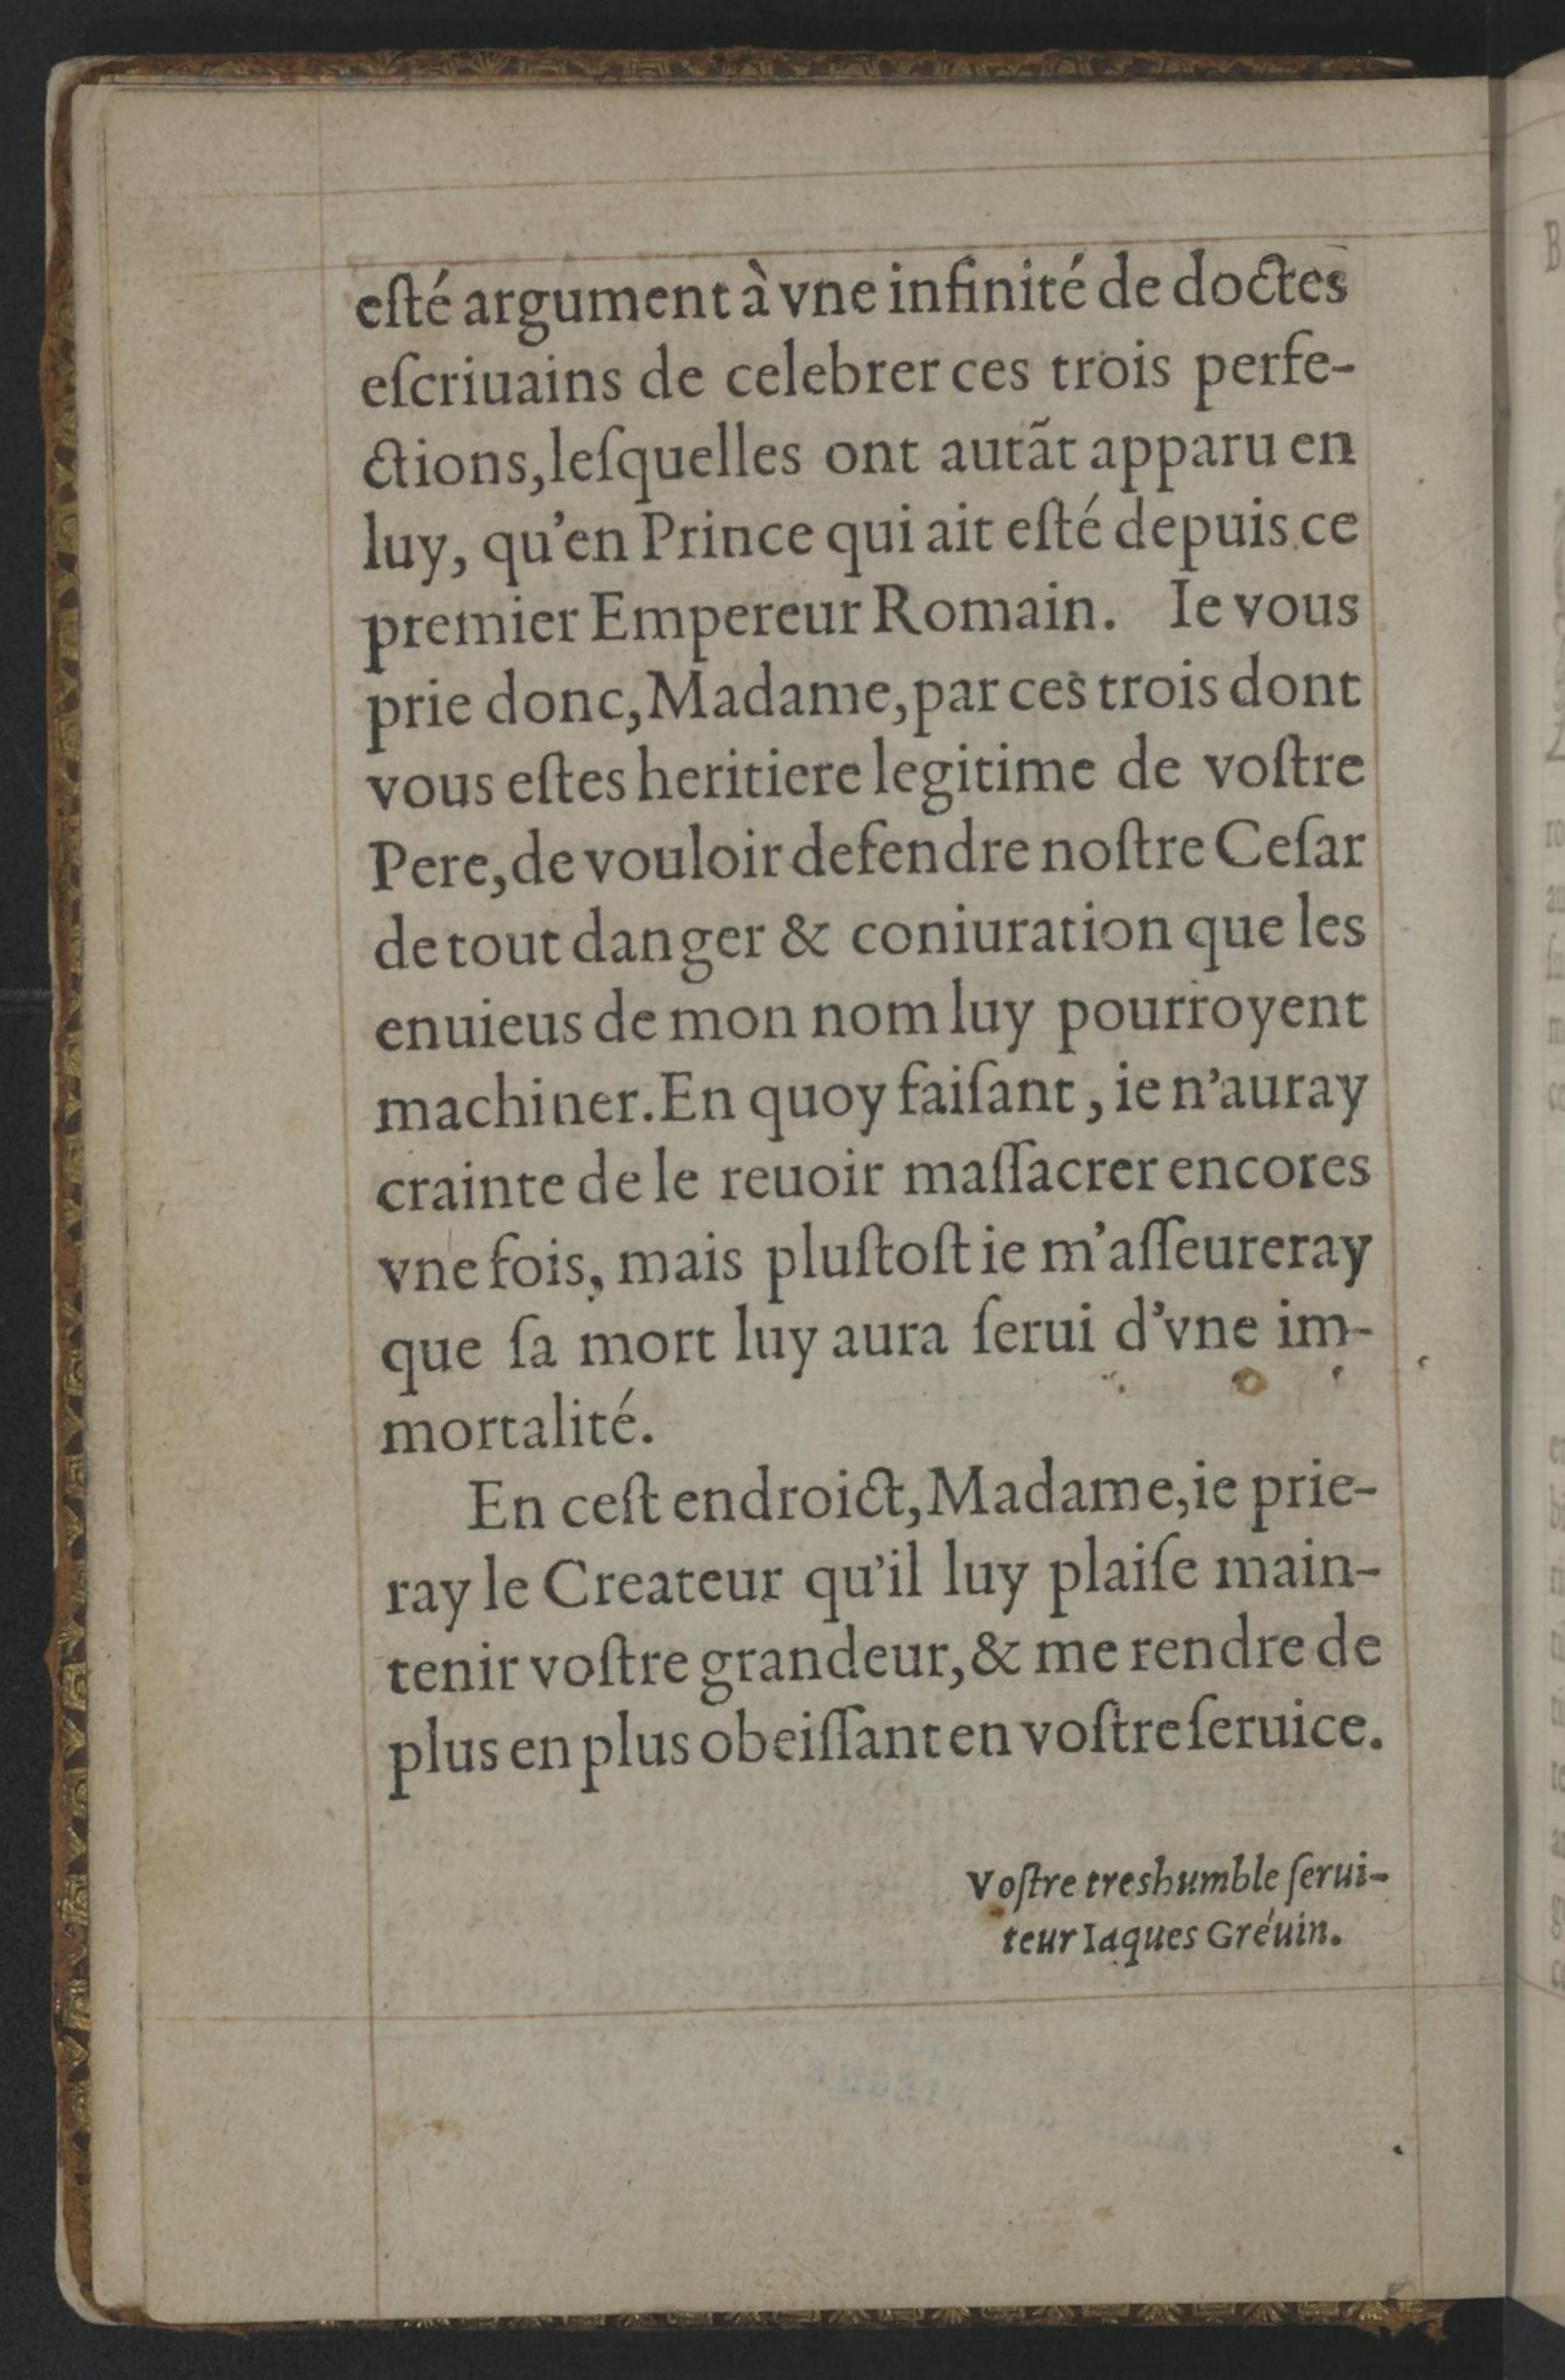 eſté argument à vne infinité de doctes
eſcriuains de celebrer ces trois perfe-
ctions, leſquelles ont autãt apparu en
luy, qu'en Prince qui ait eſté depuis ce
premier Empereur Romain. Ie vous
prie donc, Madame, par ces trois dont
vous eſtes heritiere legitime de voſtre
Pere, de vouloir defendre noſtre Ceſar
de tout danger & coniuration que les
enuieus de mon nom luy pourroyent
machiner. En quoy faiſant, ie n'auray
crainte de le reuoir maſſacrer encores
vne fois, mais pluſtoſt ie m'aſſeureray
que ſa mort luy aura ſerui d'vne im-
mortalité.
En ceſt endroict, Madame, ie prie-
ray le Createur qu'il luy plaiſe main-
tenir voſtre grandeur, & me rendre de
plus en plus obeiſſant en voſtre ſeruice.
Voſtre treshumble ſerui-
teur Iaques Gréuin.